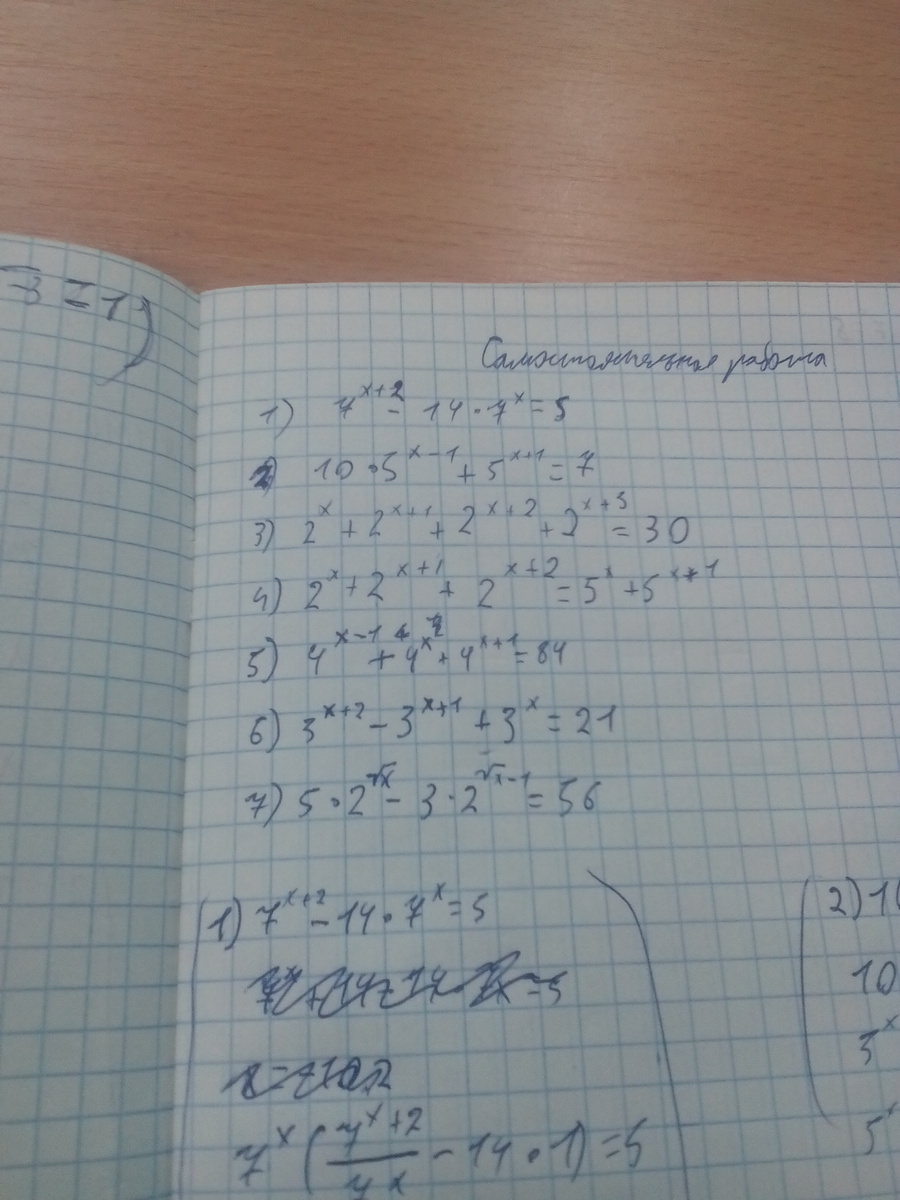 -3 = 1)
Самостоятельная работа
1) 7^{x+2} - 14 · 7^x = 5
2) 10 · 5^{x-1} + 5^{x+1} = 7
3) 2^x + 2^{x+1} + 2^{x+2} + 2^{x+3} = 30
4) 2^x + 2^{x+1} + 2^{x+2} = 5^x + 5^{x+1}
5) 4^{x-1} + 4^x + 4^{x+1} = 84
6) 3^{x+2} - 3^{x+1} + 3^x = 21
7) 5 · 2^{√x} - 3 · 2^{√x-1} = 56
1) 7^{x+2} - 14 · 7^x = 5
= 5
7^x (7^{x+2}/7^x - 14 · 1) = 5
2) 1
10
5^x
5